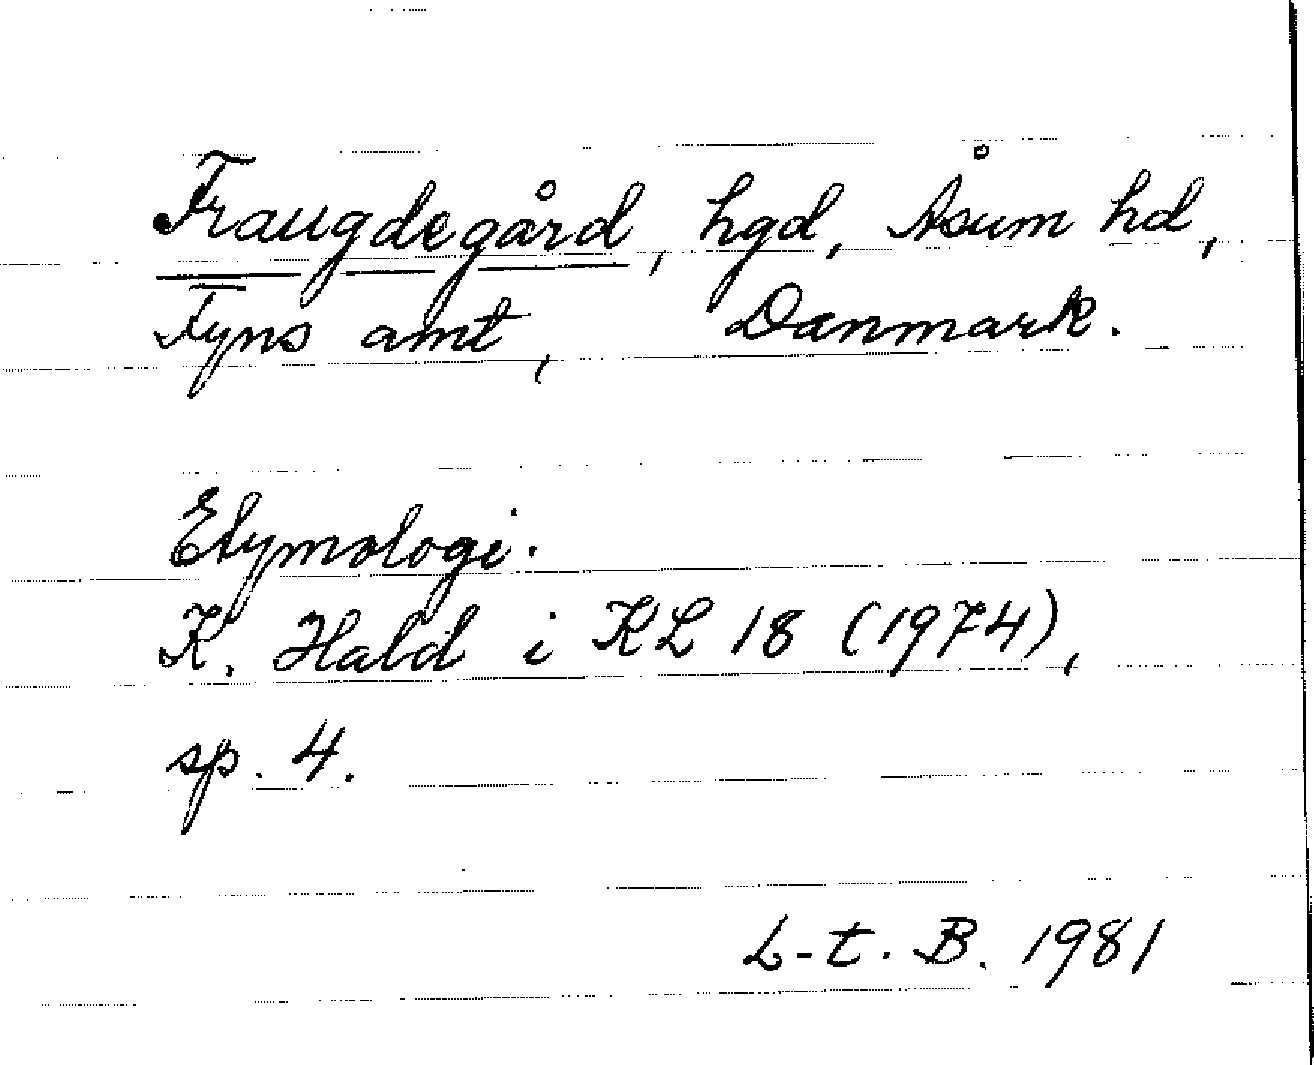 Fraugdegård, hgd, Åsum hd,
Fyns amt, Danmark.
Etymologi.
K. Hald i KL 18 (1974),
sp. 4.
L-t. B. 1981